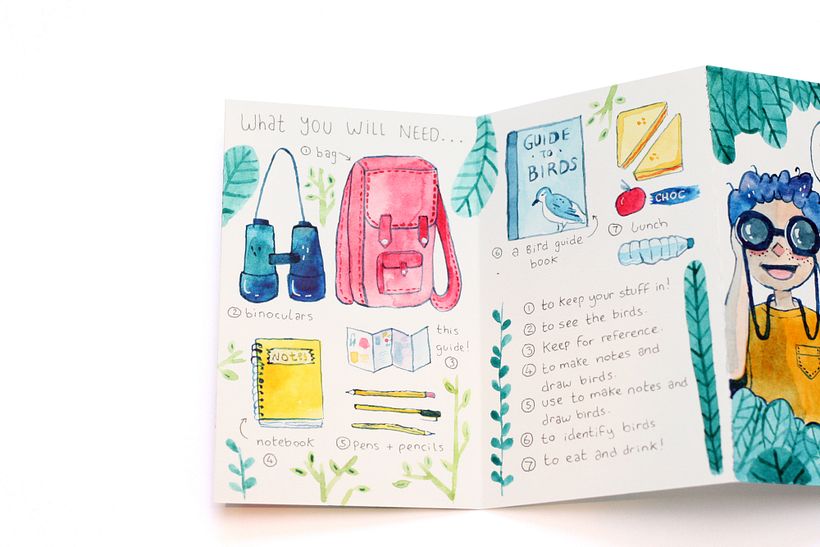 What you will need...
① bag
② binoculars
Notes
notebook
④
this
guide!
③
⑤ pens + pencils
GUIDE
TO
BIRDS
⑥ a Bird guide
book
CHOC
⑦ lunch
① to keep your stuff in!
② to see the birds.
③ Keep for reference.
④ to make notes and
draw birds.
⑤ use to make notes and
draw birds.
⑥ to identify birds
⑦ to eat and drink!